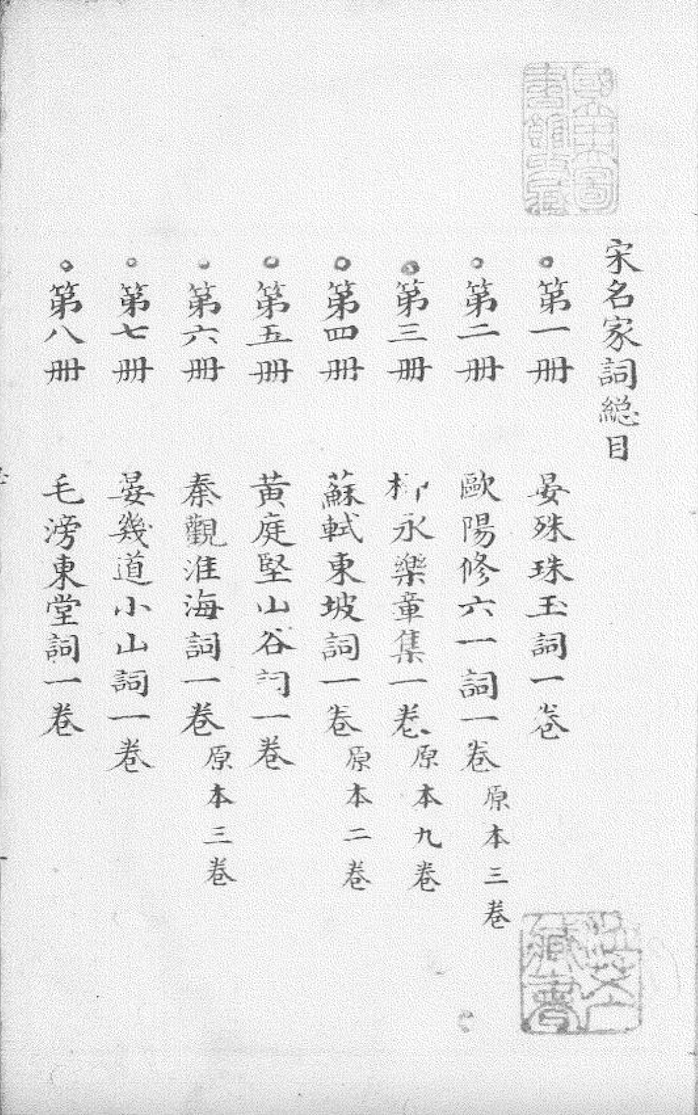 宋名家詞総目
第一册　晏殊珠玉詞一卷
第二册　歐陽修六一詞一卷 原本三卷
第三册　柳永樂章集一卷 原本九卷
第四册　蘇軾東坡詞一卷 原本二卷
第五册　黃庭堅山谷詞一卷
第六册　秦觀淮海詞一卷 原本三卷
第七册　晏幾道小山詞一卷
第八册　毛滂東堂詞一卷